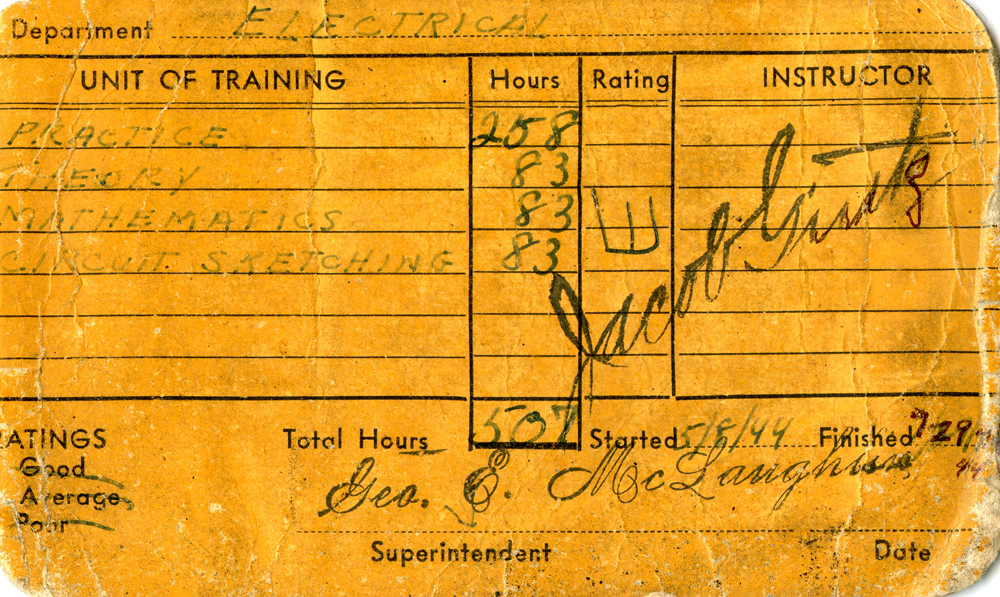 Department ELECTRICAL
UNIT OF TRAINING Hours Rating INSTRUCTOR
PRACTICE 258
THEORY 83
MATHEMATICS 83 E
CIRCUIT SKETCHING 83
Jacob
ATINGS Total Hours 507 Started 5/8/44 Finished 7/29/44
Good
Average
Poor
Geo. E. McLaughlin
Superintendent Date